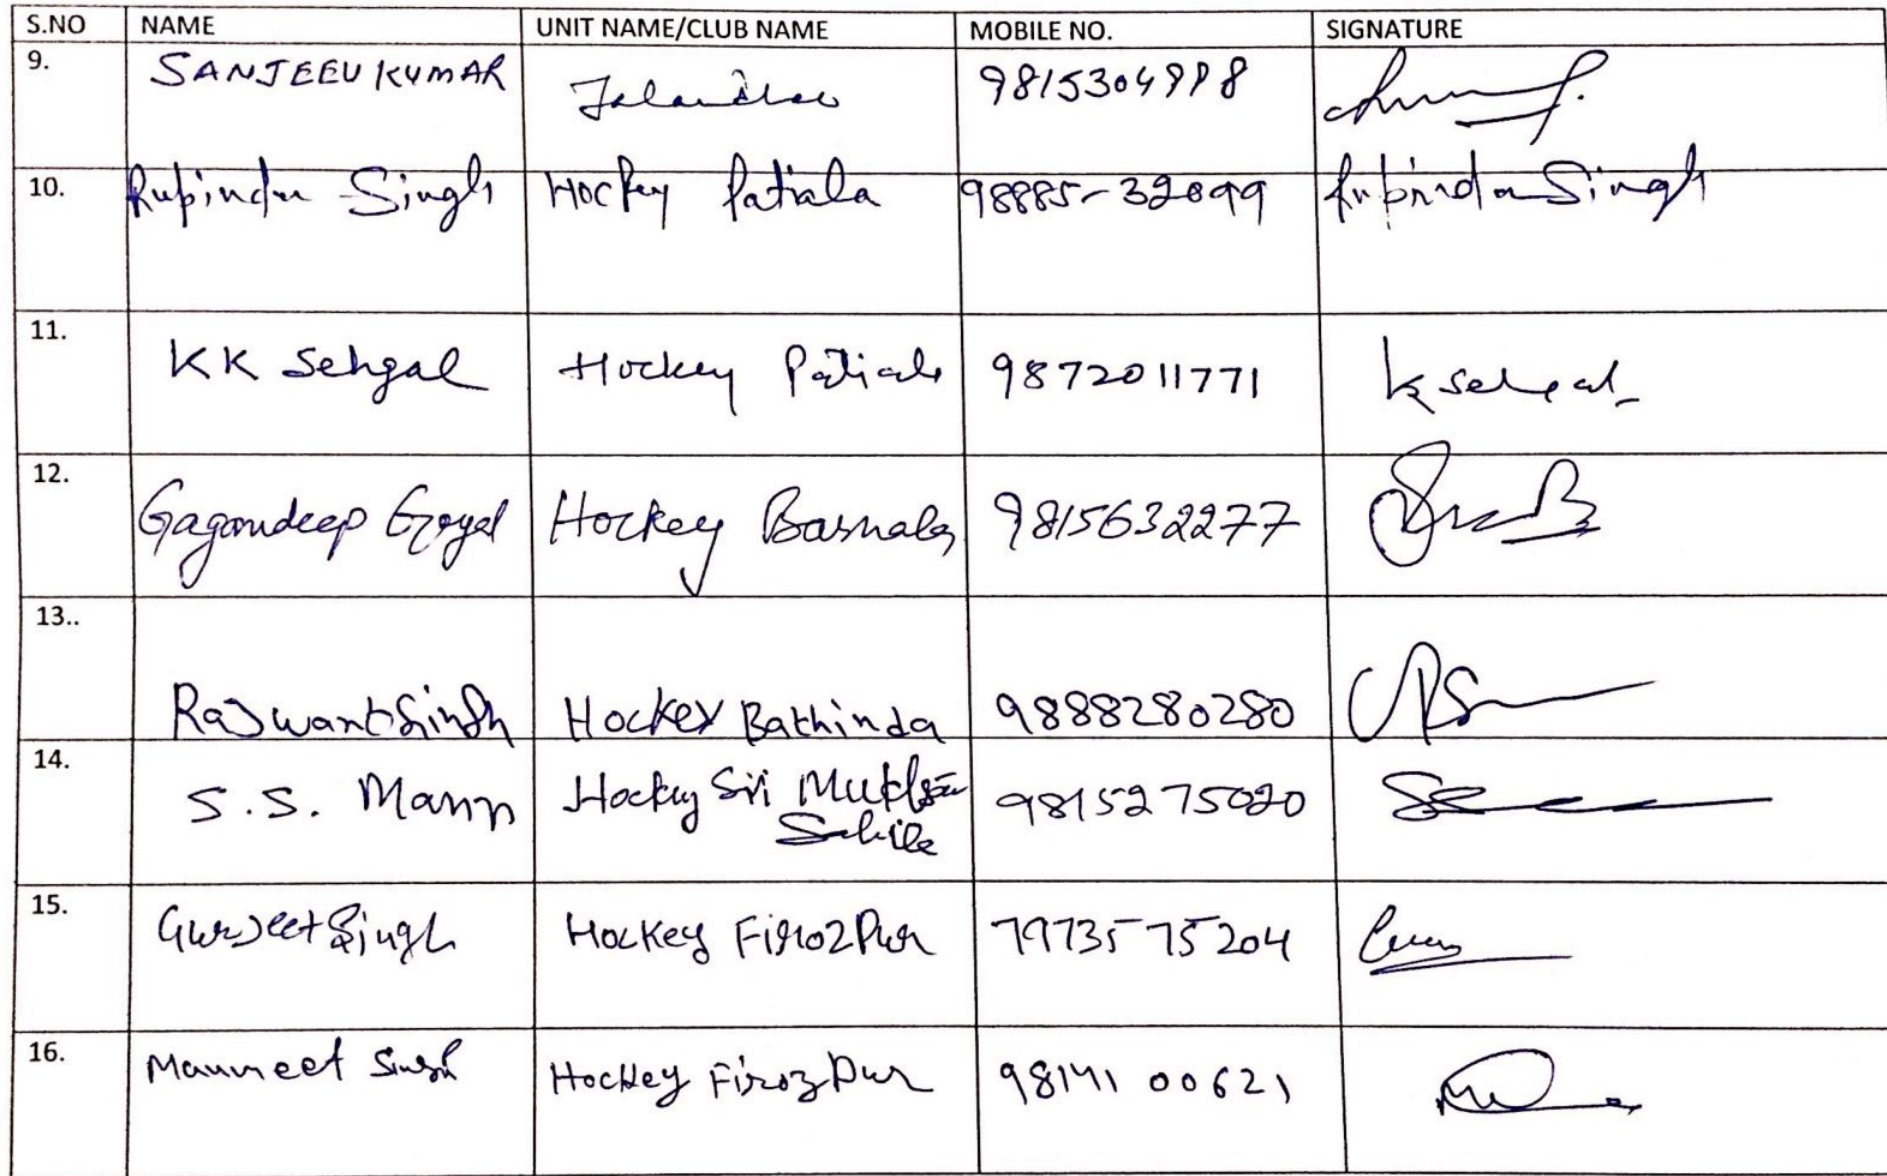 S.NO NAME UNIT NAME/CLUB NAME MOBILE NO. SIGNATURE
9. SANJEEV KUMAR Jalandhar 9815304998
10. Rupinder Singh Hockey Patiala 98885-32099 Rupinder Singh
11. KK Sehgal Hockey Patiala 9872011771 K Sehgal
12. Gagandeep Goyal Hockey Barnala 9815632277
13.. Rajwant Singh Hockey Bathinda 9888280280
14. S.S. Mann Hockey Sri Muktsar 9815275020
Sahib
15. Gurjeet Singh Hockey Firozpur 79735 75204
16. Manmeet Singh Hockey Firozpur 98141 00621